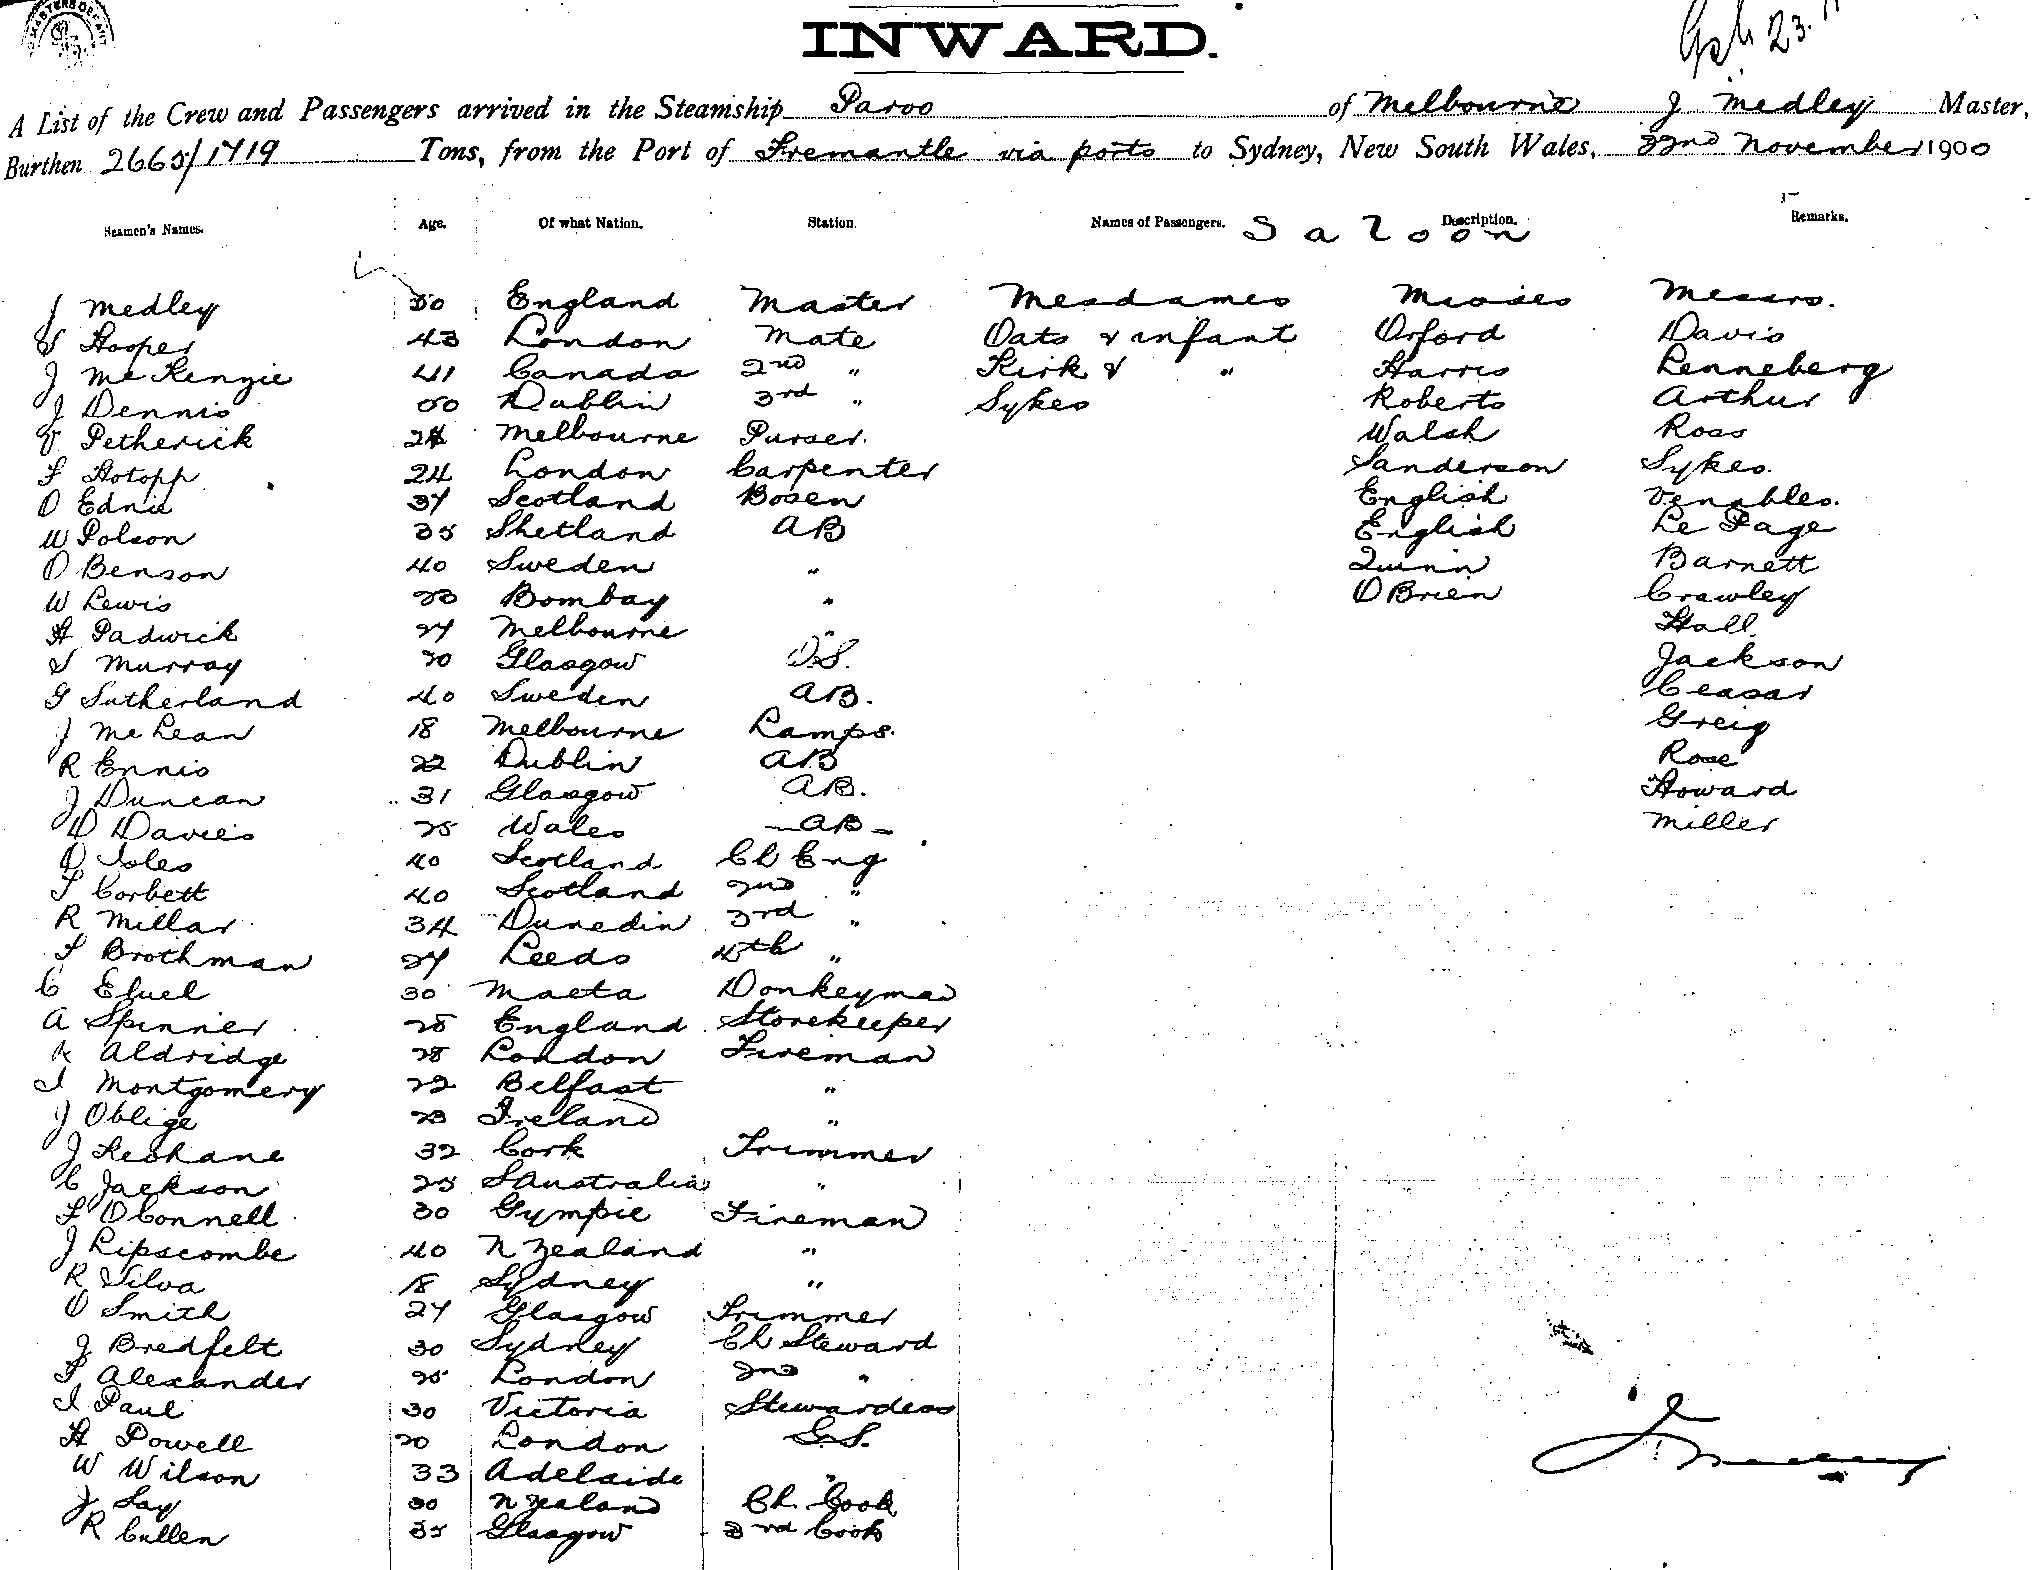 INWARD.
A List of the Crew and Passengers arrived in the Steamship Paroo of Melbourne J Medley Master,
Burthen 2665/1719 Tons, from the Port of Fremantle via ports to Sydney, New South Wales, 22nd November 1900
Seamen's Names. Age. Of what Nation. Station. Names of Passengers. Saloon Description. Remarks.
J Medley 50 England Master Mesdames Misses Messrs.
S Hooper 43 London Mate Oats & infant Orford Davis
J McKenzie 41 Canada 2nd " Kirk & " Harris Renneberg
J Dennis 50 Dublin 3rd " Sykes Roberts Arthur
V Petherick 24 Melbourne Purser. Walsh Ross
F Hotopp 24 London Carpenter Sanderson Sykes.
D Ednie 37 Scotland Bosen English Venables.
W Polson 35 Shetland AB English Le Page
O Benson 40 Sweden " Quinn Barnett
W Lewis 23 Bombay " O Brien Crawley
H Padwick 27 Melbourne " Hall
S Murray 20 Glasgow O.S. Jackson
G Sutherland 40 Sweden AB. Ceasar
J McLean 18 Melbourne Lamps. Greig
R Ennis 22 Dublin AB Rose
J Duncan 31 Glasgow AB. Howard
D Davies 25 Wales AB Miller
D Isles 40 Scotland Ch Eng
T Corbett 40 Scotland 2nd "
R Millar 34 Dunedin 3rd "
F Brothman 27 Leeds 4th "
C 30 Donkeyman
A Spinner 25 England Storekeeper
Aldridge 28 London Fireman
I Montgomery 22 Belfast "
J Oblige 23 Ireland "
J Keohane 32 Cork Trimmer
C Jackson 25 S Australia "
F O Connell 30 Gympie Fireman
J Lipscombe 40 N Zealand "
R Silva 18 Sydney "
D Smith 27 Glasgow Trimmer
J Bredfelt 30 Sydney Ch Steward
F Alexander 25 London 2nd "
I Paul 30 Victoria Stewardess
H Powell 20 London G.S.
W Wilson 33 Adelaide "
J Say 30 N Zealand Ch. Cook
R Cullen 35 Glasgow 3rd Cook
J Medley